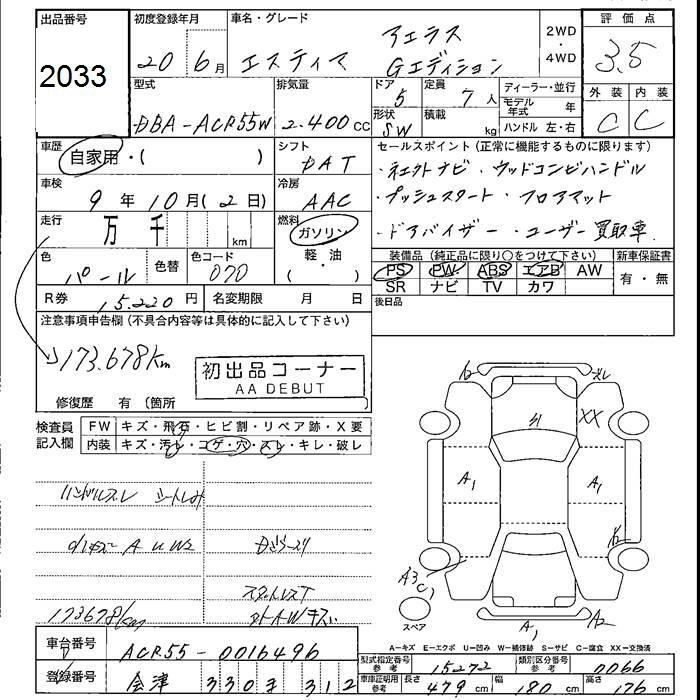 出品番号
2033
初度登録年月
20 6月
車名・グレード
エスティマ
アエラス
Gエディション
2WD
・
4WD
評価点
3.5
外装 内装
C C
型式
DBA-ACR55W
排気量
2.400cc
ドア
5
形状
SW
定員
7人
積載
kg
ディーラー・並行
モデル年式 年
ハンドル 左・右
車歴
自家用・( )
シフト
DAT
セールスポイント(正常に機能するものに限ります)
・ウッドコンビハンドル
・プッシュスタート ・フロアマット
・ドアバイザー ・ユーザー買取車
車検
9年10月(2日)
冷房
AAC
走行
万 千 km
燃料
ガソリン
(軽・油)
色
パール
色替
色コード
070
装備品(純正品に限り○をつけて下さい)
新車保証書
PS PW ABS エアB AW
SR ナビ TV カワ
有・無
R券 15.220円
名変期限 月 日
後日品
注意事項申告欄(不具合内容等は具体的に記入して下さい)
173.678km
初出品コーナー
AA DEBUT
修復歴 有(箇所
検査員
記入欄
FW キズ・飛石・ヒビ割・リペア跡・X要
内装 キズ・汚レ・コゲ・穴・スレ・キレ・破レ
ハンドルスレ
A U W2
173678km
XX
A1
A1
A1
A2
スペア
A-キズ E-エクボ U-凹み W-補修跡 S-サビ C-腐食 XX-交換済
車台番号
ACR55-0016496
型式指定番号
参考
15272
類別区分番号
参考
0066
登録番号
会津 330 312
車庫証明用
参考
長さ 479cm
幅 180cm
高さ 176cm